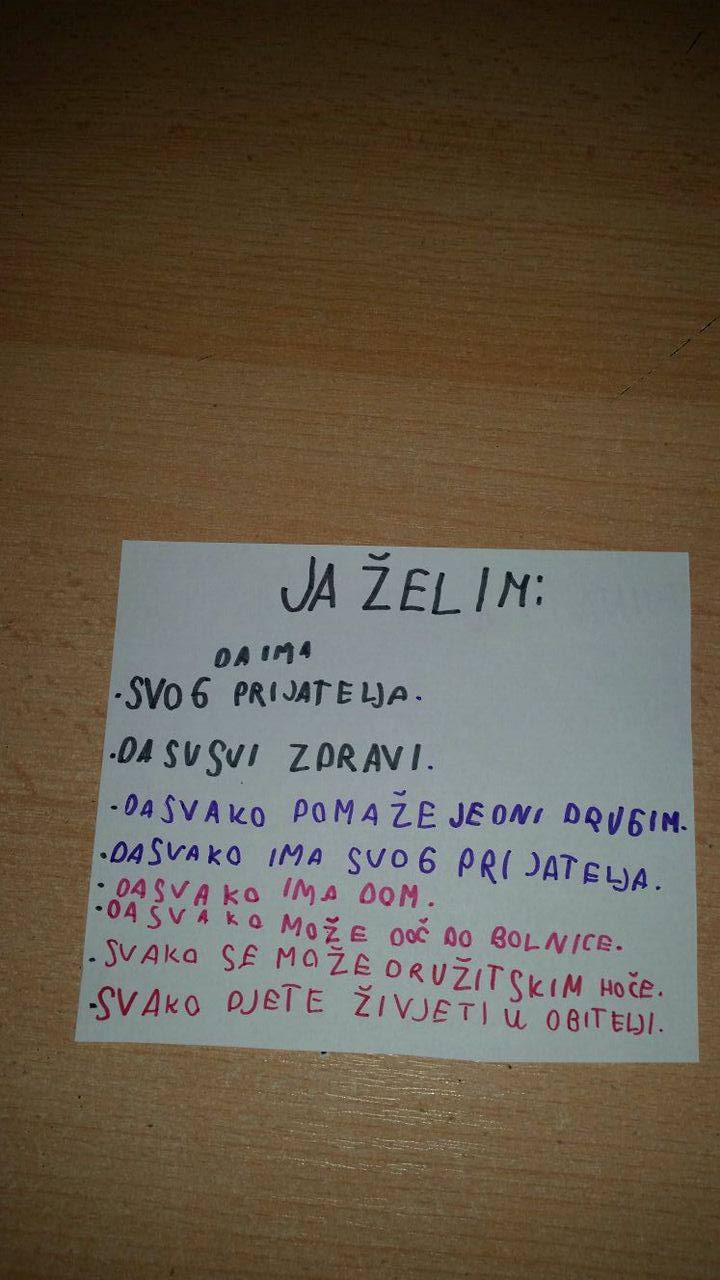 JA ŽELIM:
DA IMA
·SVOG PRIJATELJA.
·DA SU SVI ZDRAVI.
·DA SVAKO POMAŽE JEDNI DRUGIM.
·DA SVAKO IMA SVOG PRIJATELJA.
·DA SVAKO IMA DOM.
·DA SVAKO MOŽE DOČ DO BOLNICE.
·SVAKO SE MOŽE DRUŽIT SKIM HOČE.
·SVAKO DJETE ŽIVJETI U OBITELJI.